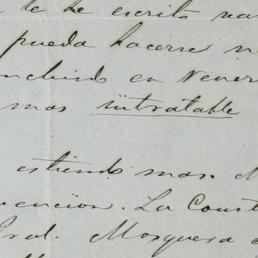 te he escrito va
pueda hacerse n
ncluido en Vene
mas intratable
estiendo mas. N
vencion. La Const
Gral. Mosquera